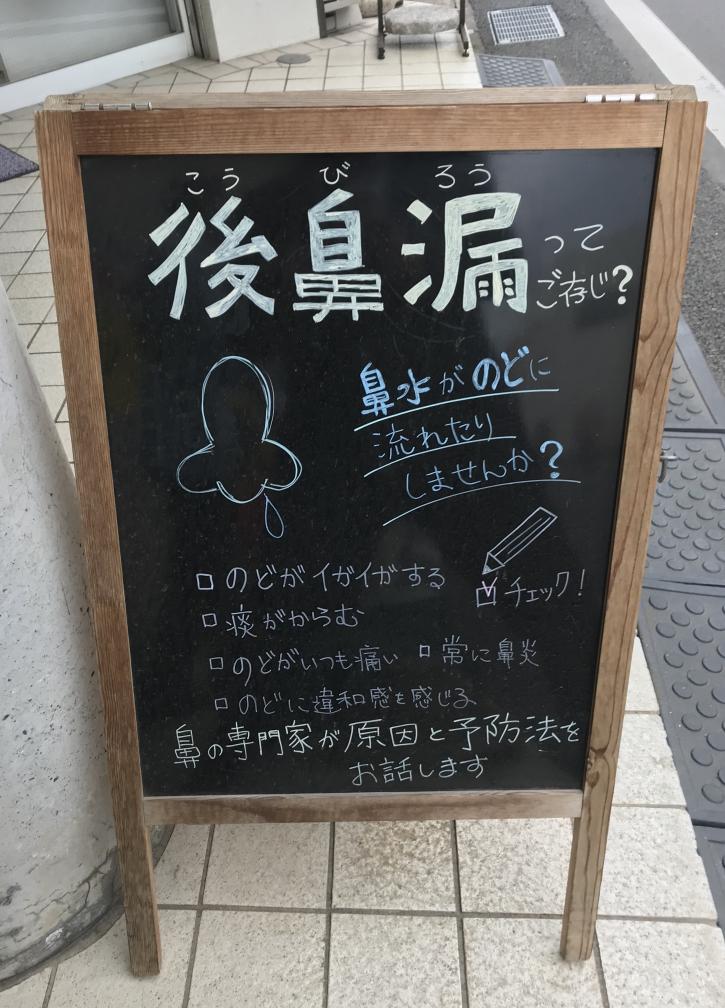 こう び ろう
後鼻漏って
ご存じ?
鼻水がのどに
流れたり
しませんか?
□のどがイガイガする
☑チェック!
□痰がからむ
□のどがいつも痛い □常に鼻炎
□のどに違和感を感じる
鼻の専門家が原因と予防法を
お話します